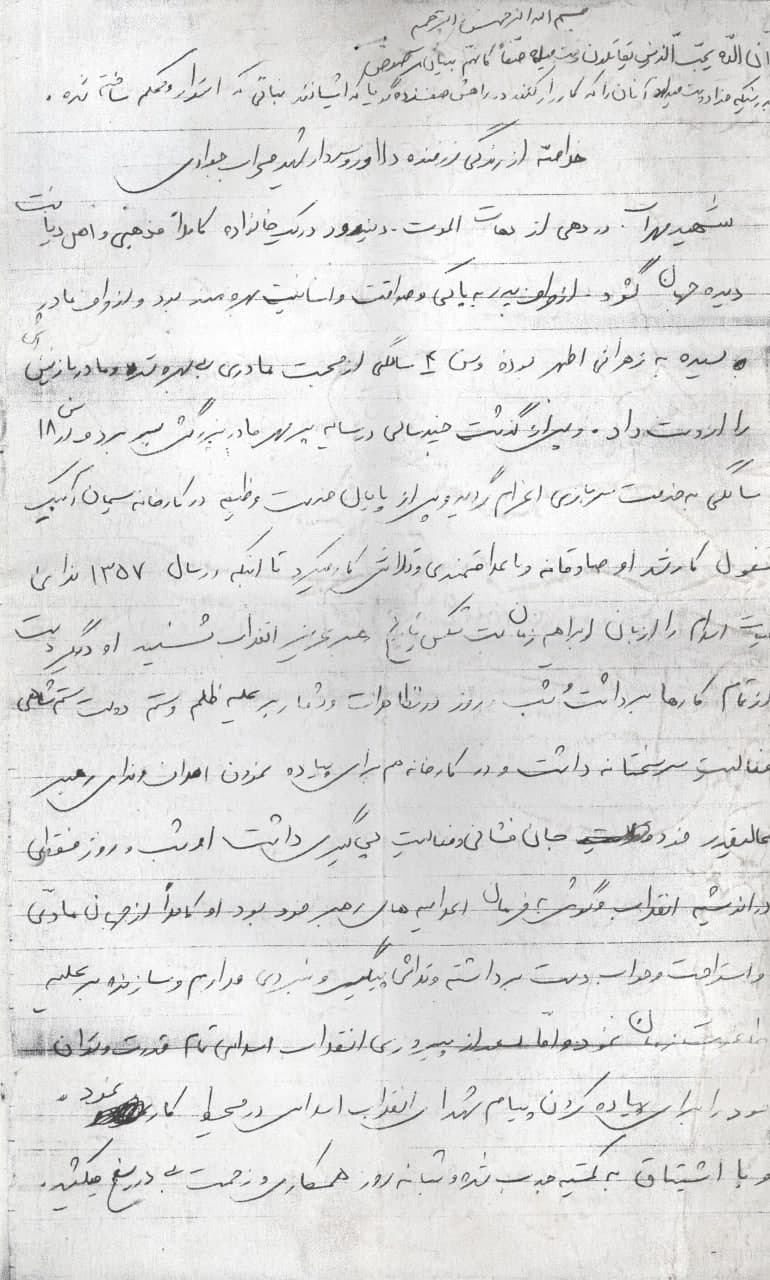 بسم الله الرحمن الرحیم
ان الله یحب الذین یقاتلون فی سبیله صفا کانهم بنیان مرصوص
بدرستیکه خدا دوست میدارد آنان را که کارزار کنند در راهش صف زده گویا که ایشانند بنائی که استوار و محکم ساخته شده.
خلاصه از زندگی رزمنده دلاور و سردار شهید مهراب جوادی
شهید مهراب در دهی از دهات الموت دیده در یک خانواده کاملاً مذهبی و اهل دیانت
دیده جهان گشود. از طرف پدر به پاکی و صداقت و انسانیت بهره مند بود و از طرف مادر
سیده به زهرای اطهر بوده و سن ۴ سالگی از محبت مادری بی بهره شده و مادر نازنینش
را از دست داد. و پس از گذشت چند سالی در سایه پر مهر مادر بزرگش بسر برد و در سن ۱۸
سالگی به خدمت سربازی اعزام گردید و پس از پایان خدمت وظیفه در کارخانه سیمان آبیک
مشغول کار شد او صادقانه و با علاقمندی و تلاش کار میکرد تا اینکه در سال ۱۳۵۷ ندای
اسلام را از زبان ابراهیم زمان بت شکن تاریخ رهبر عزیز انقلاب شنید او دیگر دست
از تمام کارها برداشت و شب و روز در تظاهرات و شعار بر علیه ظلم و ستم دولت ستم شاهی
فعالیت سرسختانه داشت و در کارخانه هم برای پیاده نمودن اهداف و ندای رهبر
عالیقدر خود جان فشانی و فعالیت پی گیری داشت او شب و روز
در اندیشه انقلاب و گوش به فرمان اعلامیه های رهبر خود بود او کاملاً از جهان مادی
و استراحت و خواب دست برداشته و تلاش پیگیر و نبردی مداوم و سازنده بر علیه
طاغوت زمان نمود و اما بعد از پیروزی انقلاب اسلامی تمام قدرت و توان
خود را برای پیاده کردن پیام شهدای انقلاب اسلامی در محیط کار نمود.
و با اشتیاق به کمیته جذب شده و شبانه روز همکاری و زحمت بی دریغ میکشید.